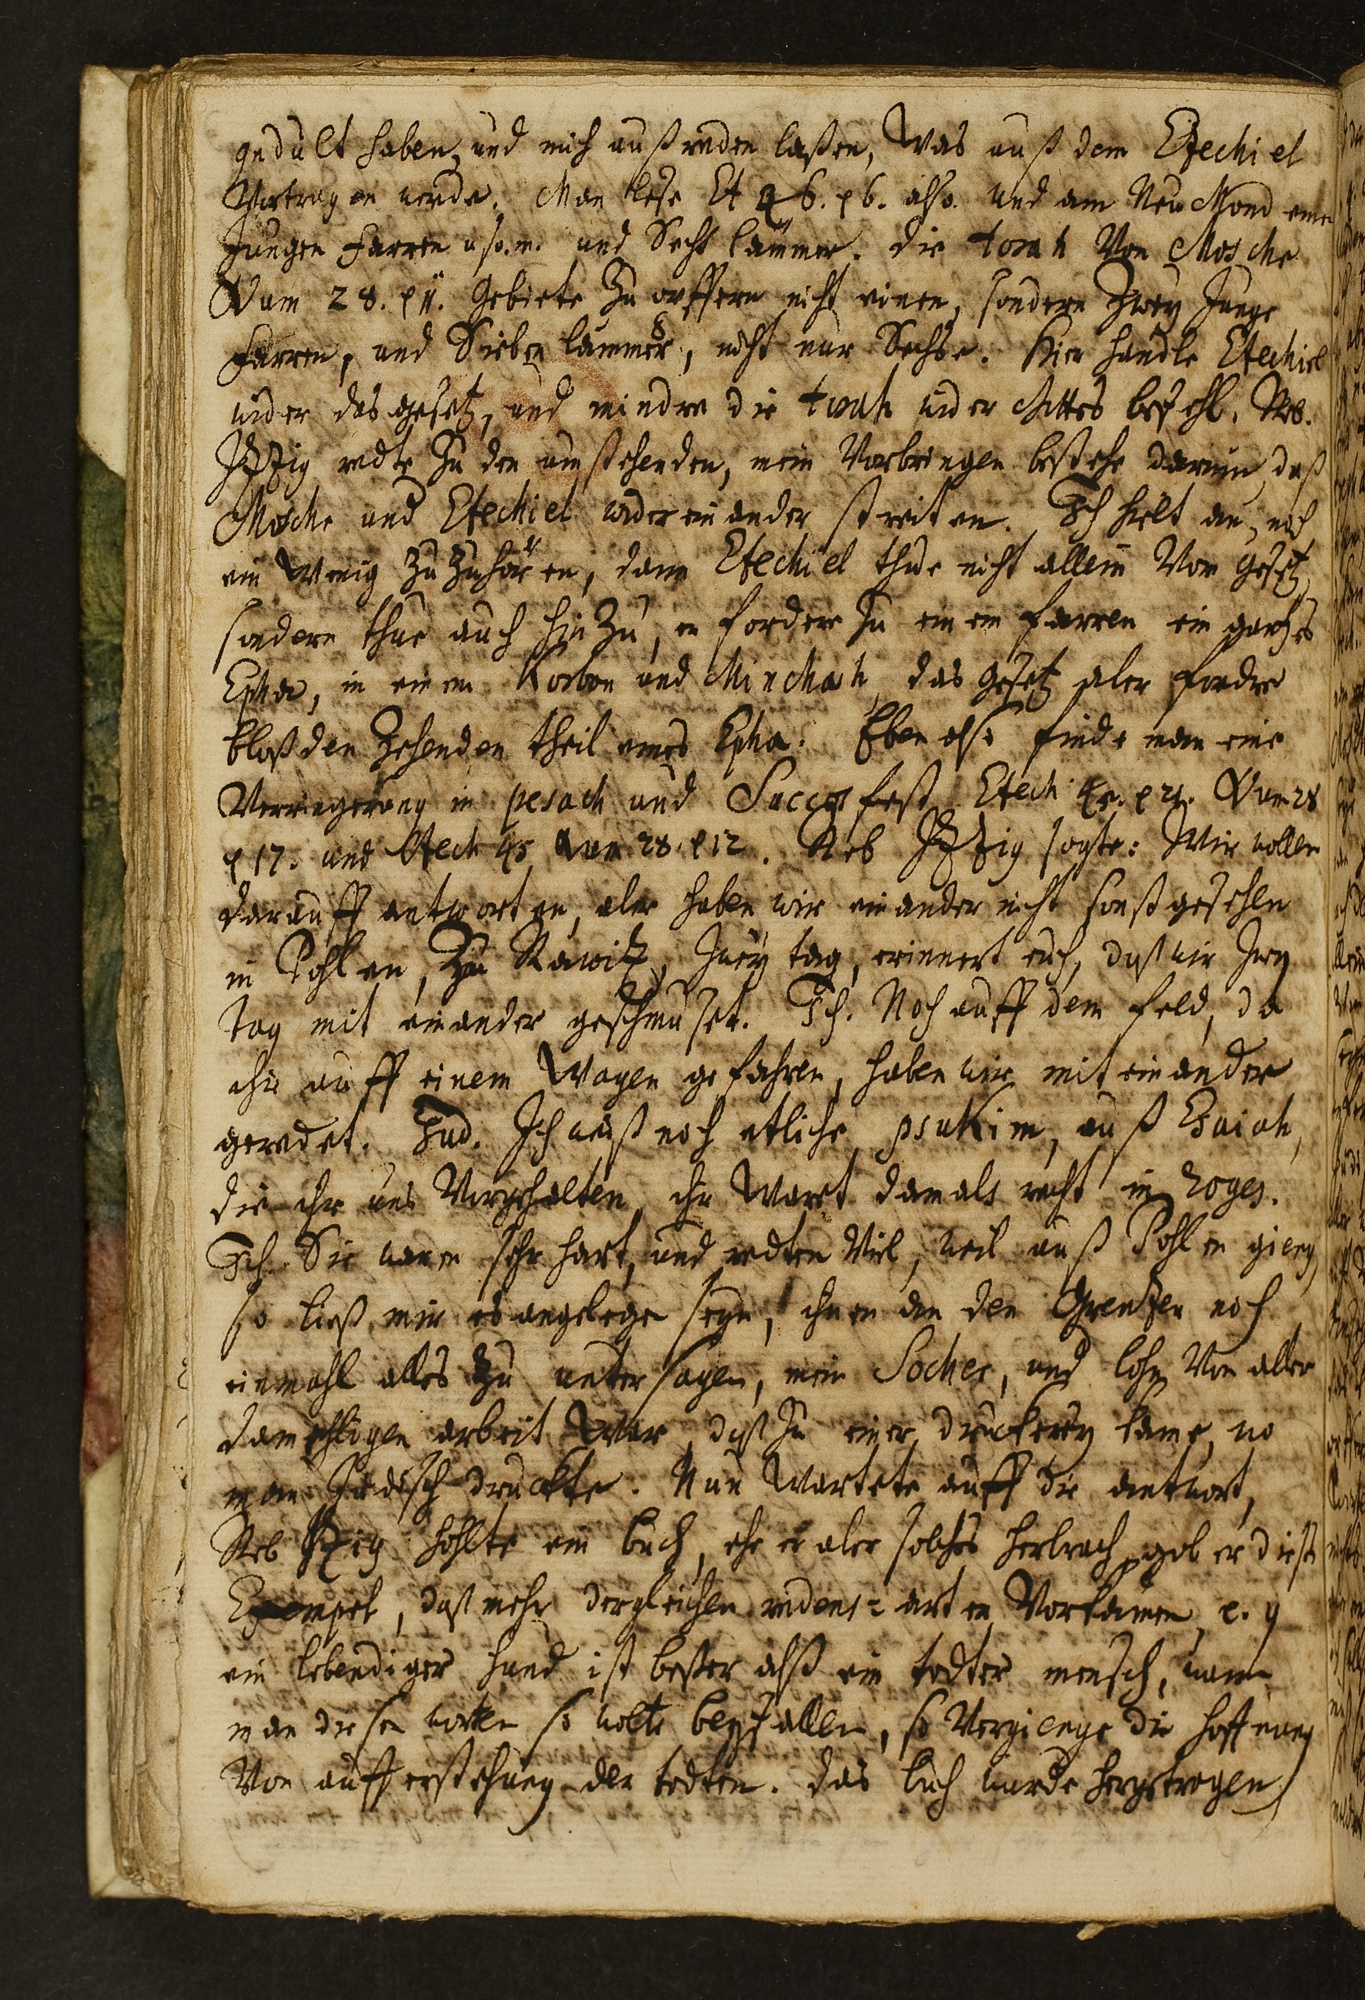 gedult haben, und mich außreden laßen, Was auß dem Ezechiel
Vortragen werde. Man lese Ez 46. p 6. also. Und am Neu Mond einen
Jungen Farren u. s. w. und Sechs Lämmer. die torah Von Mosche
Num 28. p 11. Gebiete Zu opffern nicht einen, sondern Zwey Junge
Farren, und Sieben Lämmer, nicht nur Sechse. Hier handle Ezechiel
wider das gesetz, und mindre die torah wider Gottes befehl. Reb.
Itzig redte Zu den umstehenden, mein Vorbringen bestehe darinn, daß
Mosche und Ezechiel wider einander streiten. Ich hielt an, noch
ein Wenig Zu Zuhören, dann Ezechiel thue nicht allein Vom Gesetz,
sondern thue auch hinZu, er fordere Zu einem Farren ein gantzes
Epha, in einem Korbon und Minchah, das gesetz aber fordre
bloß den Zehenden theil eines Epha. Eben also finde man eine
Verringerung in pesach und Succos fest Ezech 45. p 21. Num 28
p 17. und Ezech 45 Num 28. p 12. Reb Itzig sagte: Wir wollen
darauff antworten, aber haben wir einander nicht sonst gesehen
in Pohlen, Zu Rawitz, Zwey tag, erinnert euch, daß wir Zwey
Tag mit einander geschmuset. Ich. Noch auff dem Feld, da
ihr auff einem Wagen gefahren, haben wir mit einander
geredet. Jud. Ich weiß noch etliche psukim, auß Esaiah,
die ihr uns Vorgehalten, ihr Waret damals recht in roges.
Ich. Sie waren sehr hart, und redten Viel, weil auß Pohlen gieng,
so ließ mir es angelegen seyn, ihnen an den Grentzen noch
einmahl alles Zu untersagen, mein Socher, und lohn Von aller
damahligen arbeit War, daß Zu einer druckerey käme, wo
man Jüdisch druckte. Nun Wartete auff die antwort,
Reb Itzig hohlte ein buch, ehe er aber solches herbrach, gab er dieses
Exempel, daß mehr dergleichen redens-arten Vorkämen, e. g
ein lebendiger hund ist beßer alß ein todter mensch, wann
man diesen worten so wolte beyfallen, so Vergienge die hoffnung
Von aufferstehung der todten. das buch wurde hergetragen,